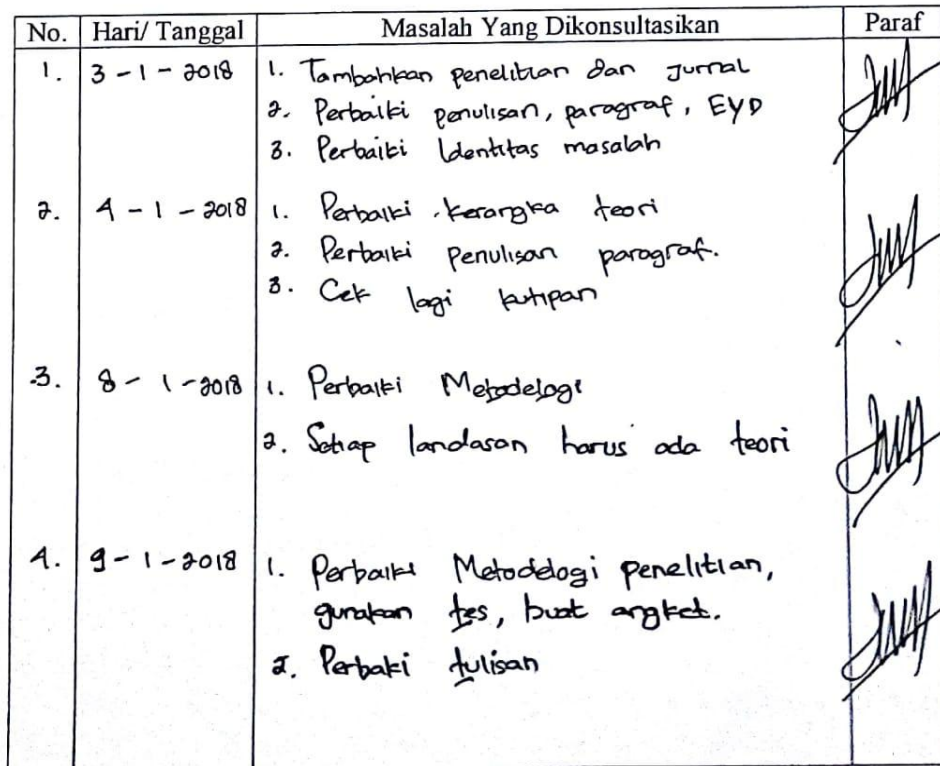 No. Hari/ Tanggal Masalah Yang Dikonsultasikan Paraf
1. 3-1-2018 1. Tambahkan penelitian dan Jurnal
2. Perbaiki penulisan, paragraf, EYD
3. Perbaiki Identitas masalah
2. 4-1-2018 1. Perbaiki kerangka teori
2. Perbaiki Penulisan paragraf.
3. Cek lagi kutipan
3. 8-1-2018 1. Perbaiki Metodelogi
2. Setiap landasan harus ada teori
4. 9-1-2018 1. Perbaiki Metodelogi penelitian,
gunakan tes, buat angket.
2. Perbaki tulisan